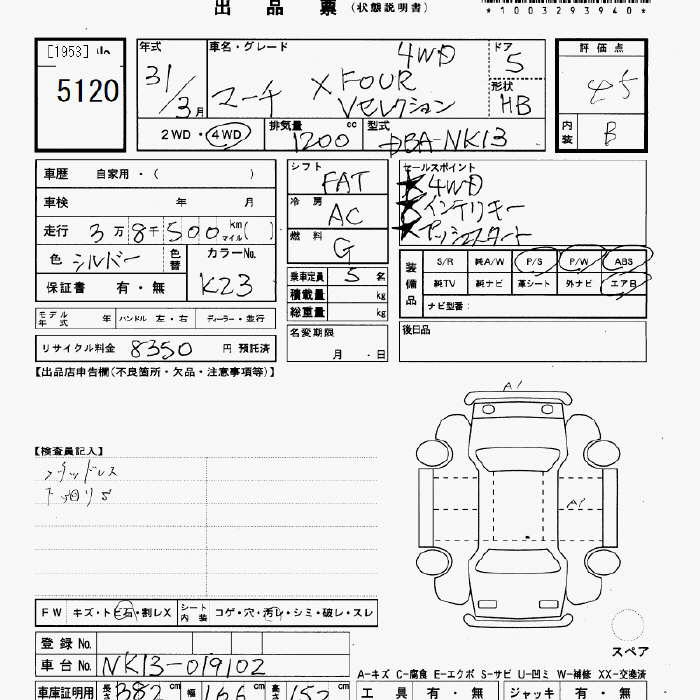 出品票 (状態説明書)
*1003293940*
[1953]
5120
年式 31/3月
車名・グレード マーチ X FOUR 4WD Vセレクション
ドア 5
形状 HB
2WD・4WD
排気量 1200 cc
型式 DBA-NK13
評価点 4.5
内装 B
車歴 自家用・( )
車検 年 月
走行 3万8千500 km マイル( )
色 シルバー 色替
カラーNo. K23
保証書 有・無
シフト FAT
冷房 AC
燃料 G
乗車定員 5名
積載量 kg
総重量 kg
セールスポイント
★4WD
★インテリキー
★プッシュスタート
装備品 S/R 純A/W P/S P/W ABS
純TV 純ナビ 革シート 外ナビ エアB
ナビ型番:
モデル年式 年 ハンドル 左・右 ディーラー・並行
リサイクル料金 8350 円 預託済
名変期限 月・日
後日品
【出品店申告欄(不良箇所・欠品・注意事項等)】
【検査員記入】
スタッドレス
下回りS
A1
A1
スペア
FW キズ・トビ石・割レX シート内装 コゲ・穴・汚レ・シミ・破レ・スレ
登録No.
車台No. NK13-019102
A-キズ C-腐食 E-エクボ S-サビ U-凹ミ W-補修 XX-交換済
車庫証明用 長さ 382 cm 幅 166 cm 高さ 152 cm
工具 有・無 ジャッキ 有・無